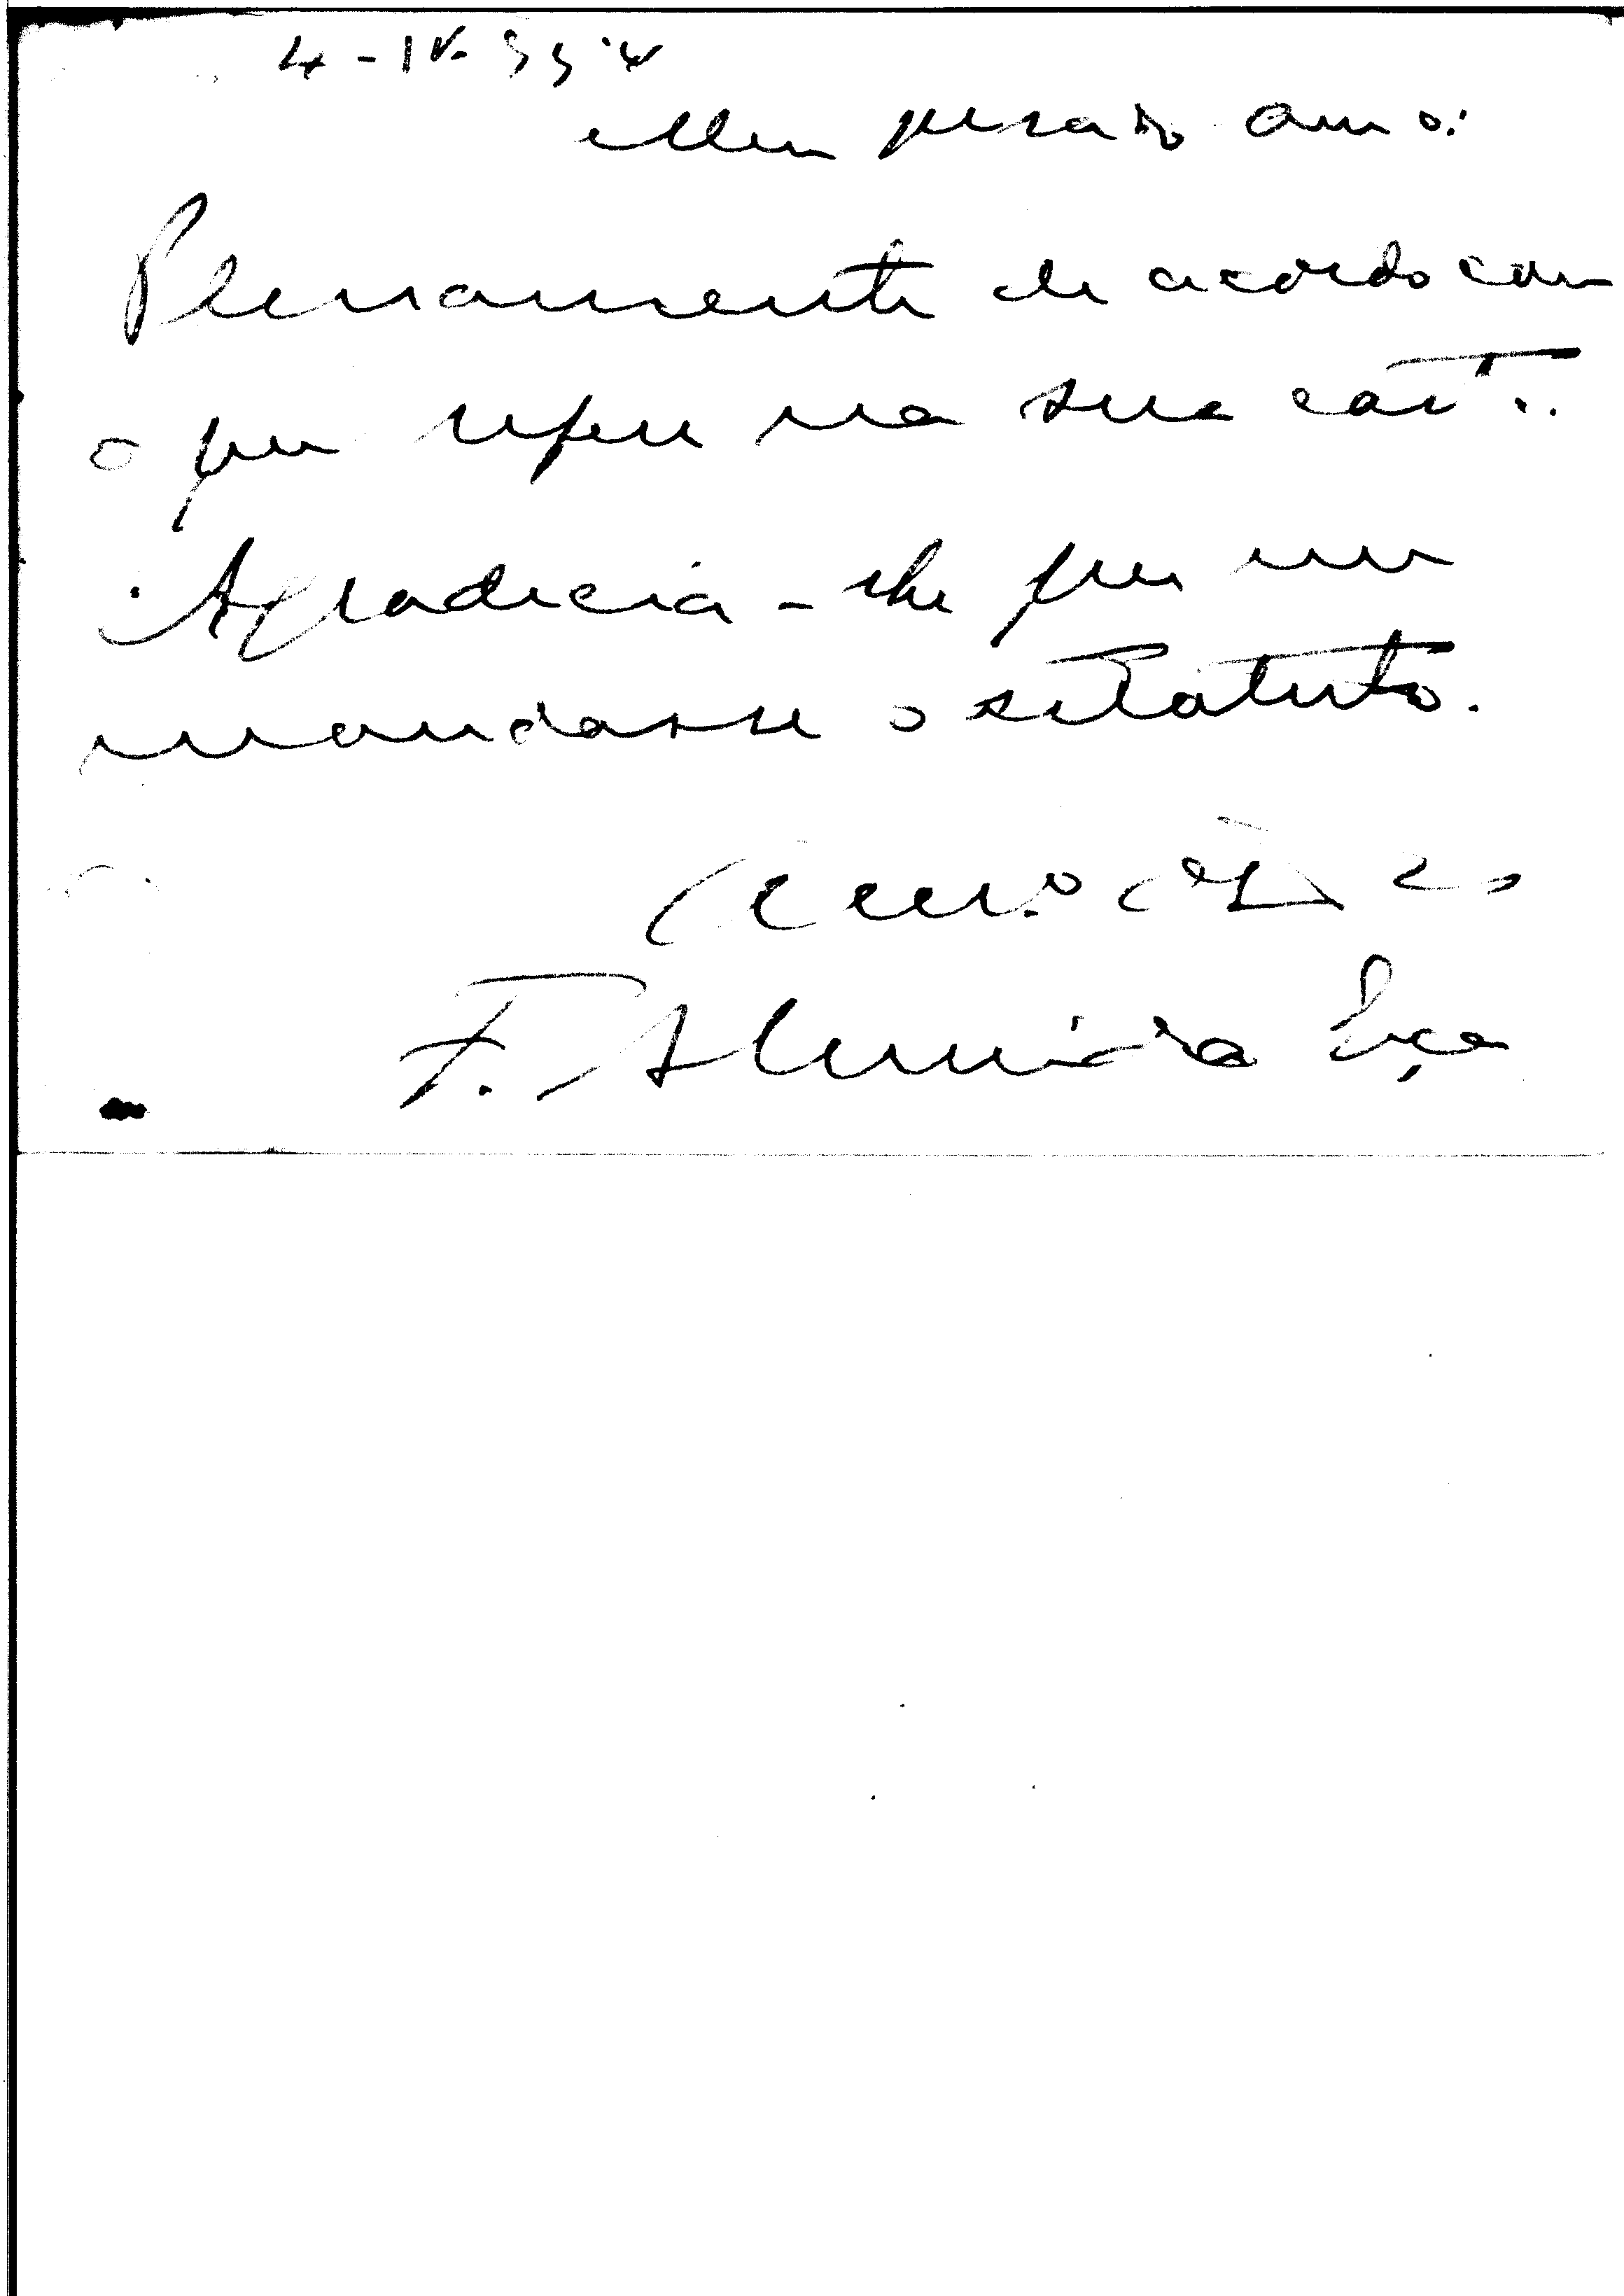 4-IV-954
Meu presado am.o:
Plenamente de acordo com
o que refere na sua carta.
Agradecia-lhe que me
mandasse o estatuto.
F. Almeida Eça